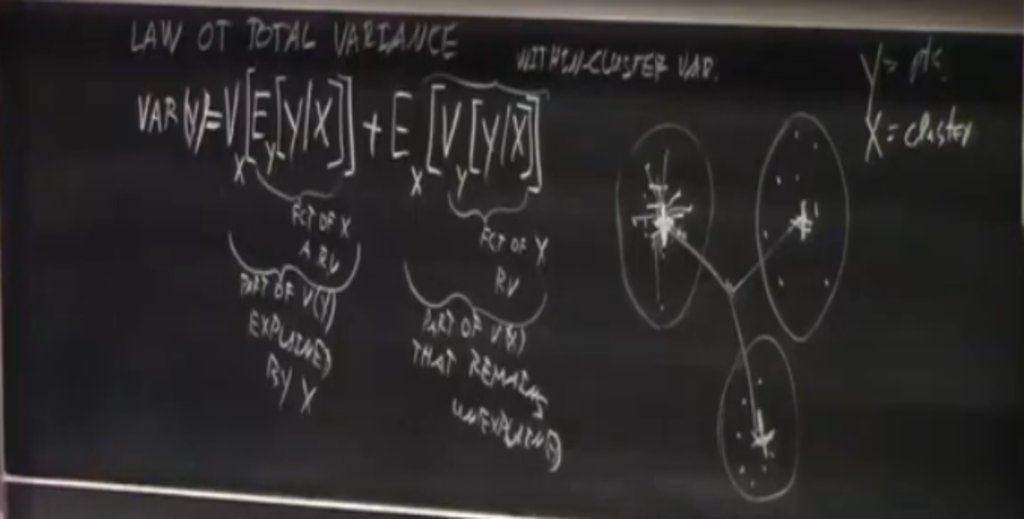 LAW OF TOTAL VARIANCE
WITHIN-CLUSTER VAR.
VAR(Y)=V[E[Y|X]] + E[V[Y|X]]
X Y X Y
FCT OF X
A RV
PART OF V(Y)
EXPLAINED
BY X
FCT OF X
RV
PART OF V(Y)
THAT REMAINS
UNEXPLAINED
Y= pts.
X= cluster